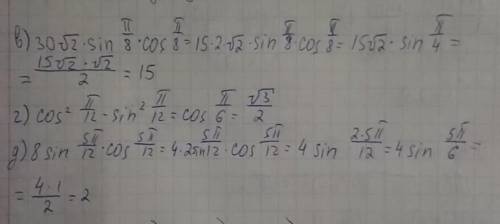 в) 30√2 · sin π/8 · cos π/8 = 15 · 2 · √2 · sin π/8 · cos π/8 = 15√2 · sin π/4 =
= 15√2 · √2/2 = 15
г) cos² π/12 - sin² π/12 = cos π/6 = √3/2
д) 8 sin 5π/12 · cos 5π/12 = 4 · 2 sin 5π/12 · cos 5π/12 = 4 sin 2·5π/12 = 4 sin 5π/6 =
= 4·1/2 = 2